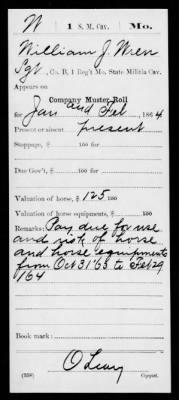 W | 1 S. M. Cav. | Mo.
William J. Wren
Sgt, Co. B, 1 Reg't Mo. State Militia Cav.
Appears on
Company Muster Roll
for Jan and Feb, 1864
Present or absent present
Stoppage, $ 100 for
Due Gov't, $ 100 for
Valuation of horse, $ 125 100
Valuation of horse equipments, $ 100
Remarks: Pay due for use
and risk of horse
and horse equipments
from Oct 31 '63 to Feb 29
'64
Book mark:
O Leary
(358) Copyist.